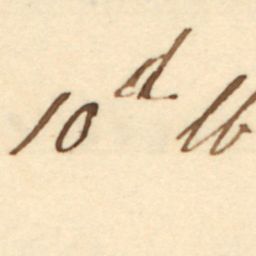 10d lb